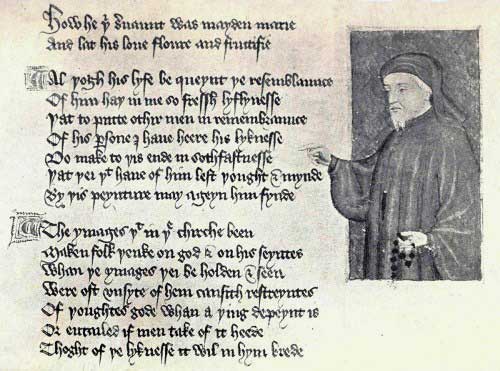 How he yͤ ẜuaunt was mayden marie
And lat his loue floure and fructifie
Al yogh his lyfe be queynt ye resemblaunce
Of him hay in me so fressh lyflynesse
Yat to putte othir men in remembraunce
Of his ꝑsone I haue heere his lyknesse
Do make to yis ende in sothfastnesse
Yat yei yᵗ haue of him left yought & mynde
By yis peynture may ageyn him fynde
The ymages yᵗ in yͤ chirche been
Maken folk yenke on god & on his seyntes
Whan ye ymages yei be holden & seen
Were oft vnsyte of hem causith restreyntes
Of youghtes gode whan a ying depeynt is
Or entailed if men take of it heede
Thoght of ye lyknesse it wil in hym brede